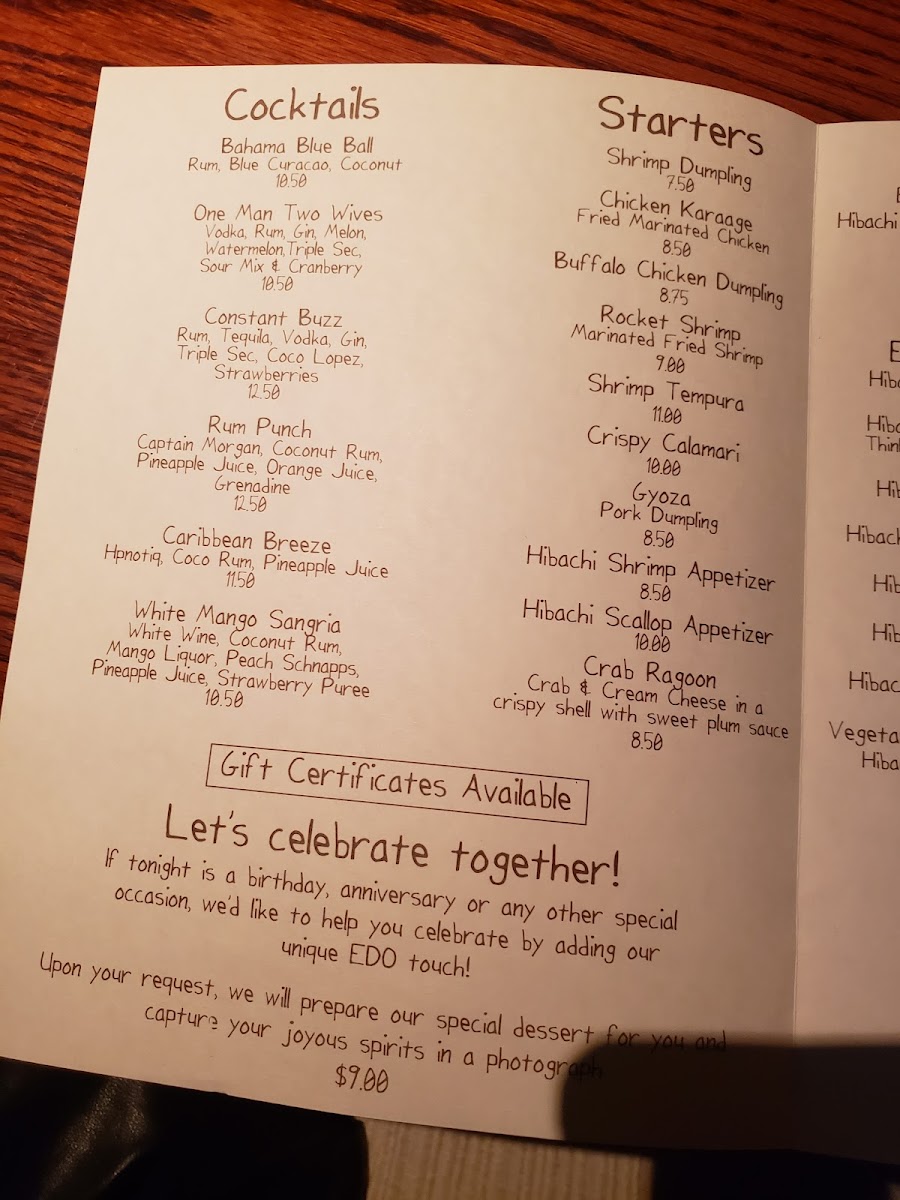 Cocktails
Bahama Blue Ball
Rum, Blue Curacao, Coconut
10.50
One Man Two Wives
Vodka, Rum, Gin, Melon,
Watermelon,Triple Sec,
Sour Mix & Cranberry
10.50
Constant Buzz
Rum, Tequila, Vodka, Gin,
Triple Sec, Coco Lopez,
Strawberries
12.50
Rum Punch
Captain Morgan, Coconut Rum,
Pineapple Juice, Orange Juice,
Grenadine
12.50
Caribbean Breeze
Hpnotiq, Coco Rum, Pineapple Juice
11.50
White Mango Sangria
White Wine, Coconut Rum,
Mango Liquor, Peach Schnapps,
Pineapple Juice, Strawberry Puree
10.50
Starters
Shrimp Dumpling
7.50
Chicken Karaage
Fried Marinated Chicken
8.50
Buffalo Chicken Dumpling
8.75
Rocket Shrimp
Marinated Fried Shrimp
9.00
Shrimp Tempura
11.00
Crispy Calamari
10.00
Gyoza
Pork Dumpling
8.50
Hibachi Shrimp Appetizer
8.50
Hibachi Scallop Appetizer
10.00
Crab Ragoon
Crab & Cream Cheese in a
crispy shell with sweet plum sauce
8.50
Gift Certificates Available
Let's celebrate together!
If tonight is a birthday, anniversary or any other special
occasion, we'd like to help you celebrate by adding our
unique EDO touch!
Upon your request, we will prepare our special dessert for you and
capture your joyous spirits in a photograph
$9.00
Hibachi